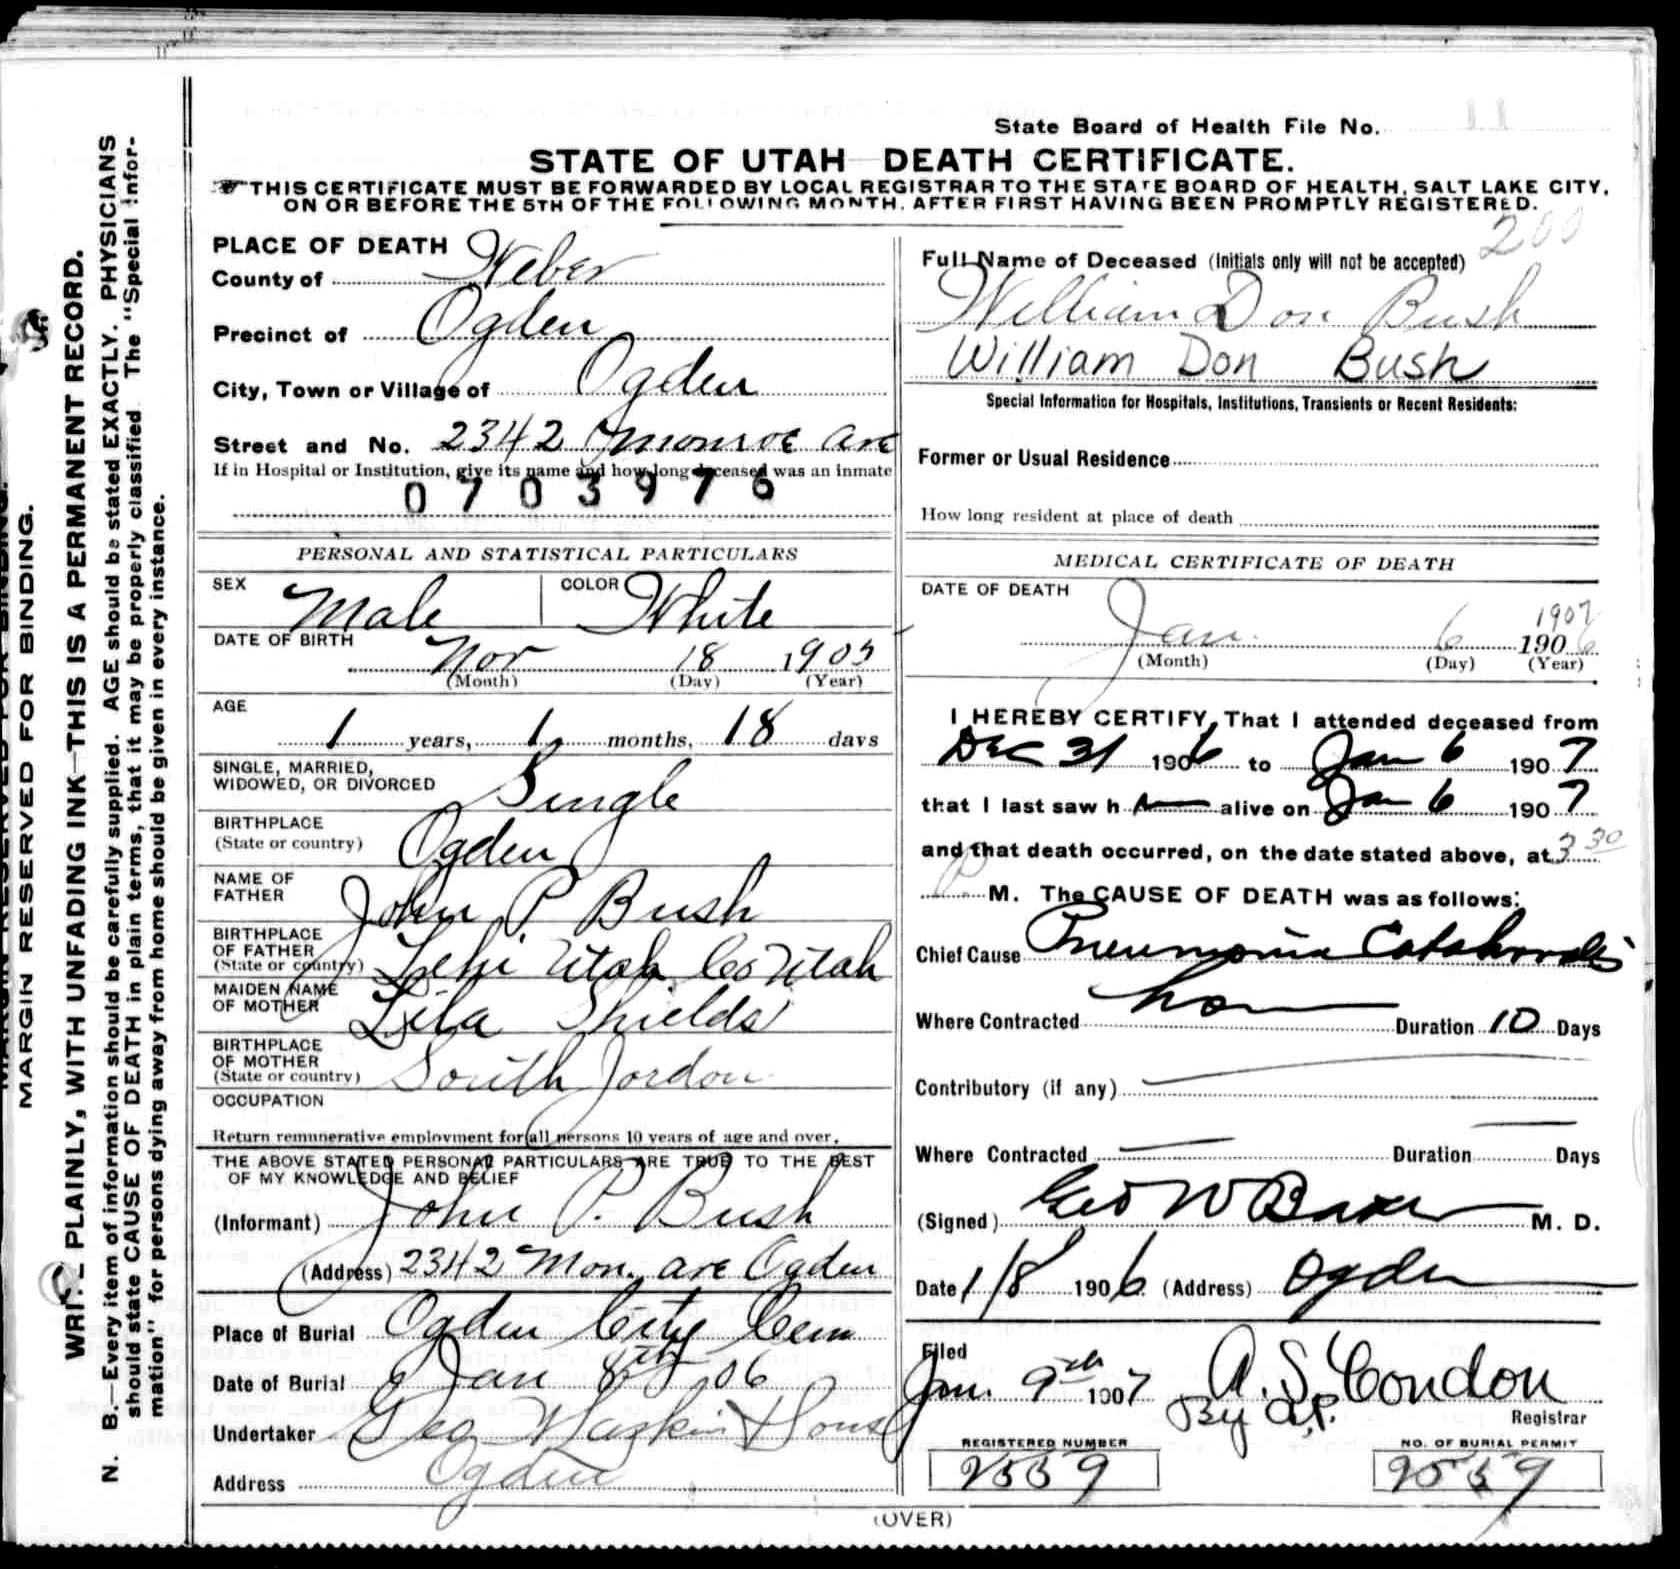 State Board of Health File No. 11
STATE OF UTAH—DEATH CERTIFICATE.
THIS CERTIFICATE MUST BE FORWARDED BY LOCAL REGISTRAR TO THE STATE BOARD OF HEALTH, SALT LAKE CITY,
ON OR BEFORE THE 5TH OF THE FOLLOWING MONTH, AFTER FIRST HAVING BEEN PROMPTLY REGISTERED.
MARGIN RESERVED FOR BINDING.
WRITE PLAINLY, WITH UNFADING INK—THIS IS A PERMANENT RECORD.
N. B.—Every item of information should be carefully supplied. AGE should be stated EXACTLY. PHYSICIANS
should state CAUSE OF DEATH in plain terms, that it may be properly classified. The "Special Infor-
mation" for persons dying away from home should be given in every instance.
PLACE OF DEATH
County of Weber
Precinct of Ogden
City, Town or Village of Ogden
Street and No. 2342 Monroe ave
If in Hospital or Institution, give its name and how long deceased was an inmate
0703976
PERSONAL AND STATISTICAL PARTICULARS
SEX Male COLOR White
DATE OF BIRTH
Nov 18 1905
(Month) (Day) (Year)
AGE
1 years, 1 months, 18 days
SINGLE, MARRIED,
WIDOWED, OR DIVORCED Single
BIRTHPLACE
(State or country) Ogden
NAME OF
FATHER John P Bush
BIRTHPLACE
OF FATHER
(State or country) Lehi Utah Co Utah
MAIDEN NAME
OF MOTHER Lila Shields
BIRTHPLACE
OF MOTHER
(State or country) South Jordon
OCCUPATION
Return remunerative employment for all persons 10 years of age and over.
THE ABOVE STATED PERSONAL PARTICULARS ARE TRUE TO THE BEST
OF MY KNOWLEDGE AND BELIEF
(Informant) John P. Bush
(Address) 2342 Mon. ave Ogden
Place of Burial Ogden City Cem
Date of Burial Jan 8th 06
Undertaker Geo Larkin & Sons
Address Ogden
200
Full Name of Deceased (Initials only will not be accepted)
William Don Bush
William Don Bush
Special Information for Hospitals, Institutions, Transients or Recent Residents:
Former or Usual Residence
How long resident at place of death
MEDICAL CERTIFICATE OF DEATH
DATE OF DEATH
1907
Jan. 6 1906
(Month) (Day) (Year)
I HEREBY CERTIFY, That I attended deceased from
Dec 31 1906 to Jan 6 1907
that I last saw h alive on Jan 6 1907
and that death occurred, on the date stated above, at 3 30
P. M. The CAUSE OF DEATH was as follows:
Chief Cause Pneumonia
Where Contracted Duration 10 Days
Contributory (if any)
Where Contracted Duration Days
(Signed) Geo W Baker M. D.
Date 1/8 1906 (Address) Ogden
Filed
Jan. 9th 1907 A. S. Condon
By Registrar
REGISTERED NUMBER NO. OF BURIAL PERMIT
(OVER)